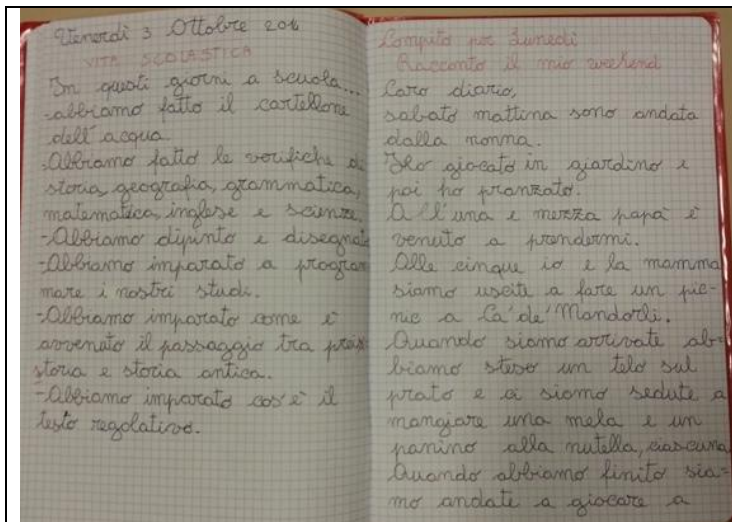 Venerdì 3 Ottobre 201
VITA SCOLASTICA
In questi giorni a scuola...
-abbiamo fatto il cartellone
dell'acqua.
-Abbiamo fatto le verifiche di
storia, geografia, grammatica,
matematica, inglese e scienze.
-Abbiamo dipinto e disegnato
-Abbiamo imparato a program
mare i nostri studi.
-Abbiamo imparato come è
avvenuto il passaggio tra preis
storia e storia antica.
-Abbiamo imparato cos'è il
testo regolativo.
Compito per Lunedì
Racconto il mio weekend
Caro diario,
sabato mattina sono andata
dalla nonna.
Ho giocato in giardino e
poi ho pranzato.
All'una e mezza papà è
venuto a prendermi.
Alle cinque io e la mamma
siamo uscite a fare un pic-
nic a Ca' de' Mandorli.
Quando siamo arrivate ab=
biamo steso un telo sul
prato e ci siamo sedute a
mangiare una mela e un
panino alla nutella, ciascuna
Quando abbiamo finito sia=
mo andate a giocare a